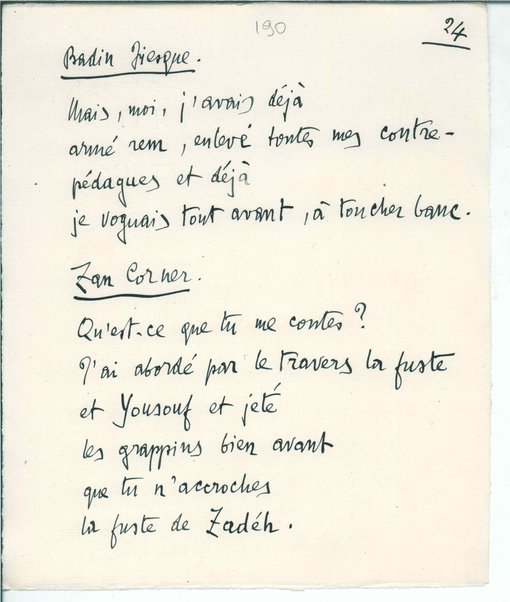 190
24
Badin Ziesque.
Mais, moi, j'avais déjà
armé rem, enlevé toutes mes contre-
pédagues et déjà
je voguais tout avant, à toucher banc.
Zan Corner.
Qu'est-ce que tu me contes ?
J'ai abordé par le travers la fuste
et Yousouf et jeté
les grappins bien avant
que tu n'accroches
la fuste de Zadéh.